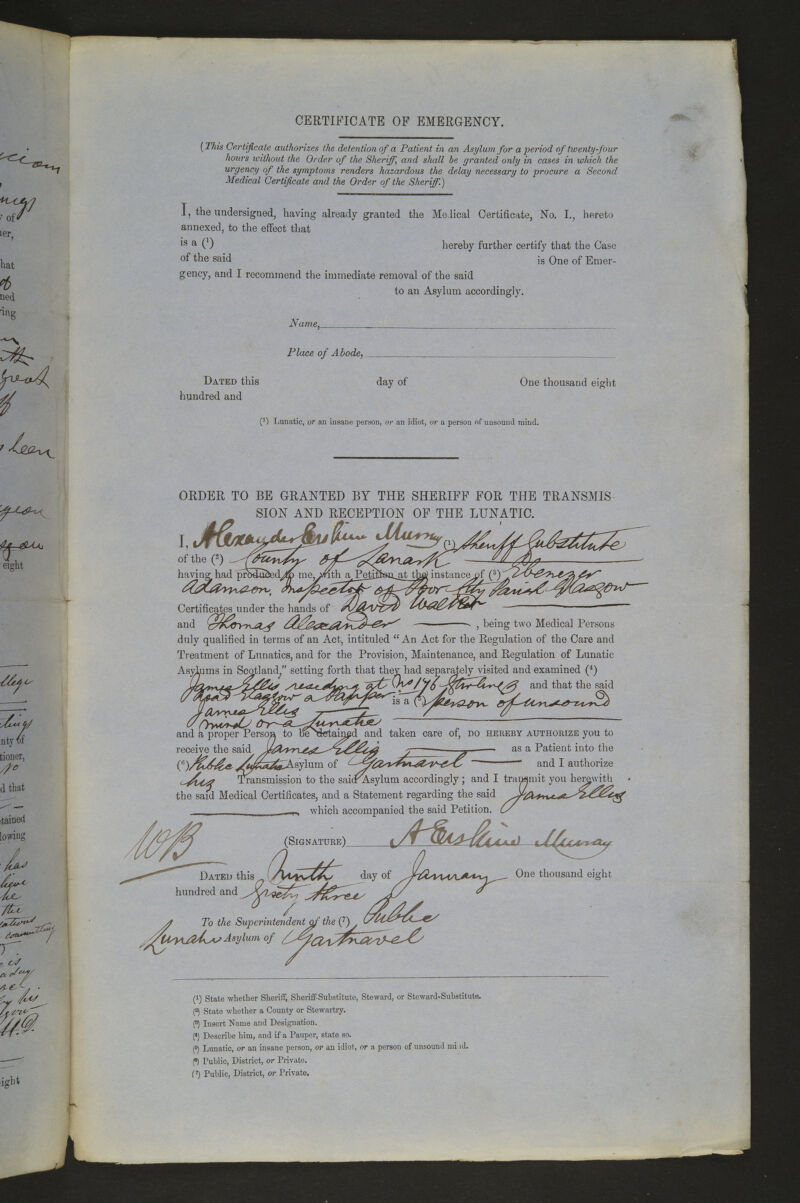 CERTIFICATE OF EMERGENCY.
(This Certificate authorizes the detention of a Patient in an Asylum for a period of twenty-four
hours without the Order of the Sheriff, and shall be granted only in cases in which the
urgency of the symptoms renders hazardous the delay necessary to procure a Second
Medical Certificate and the Order of the Sheriff.)
I, the undersigned, having already granted the Medical Certificate, No. I., hereto
annexed, to the effect that
is a (¹) hereby further certify that the Case
of the said is One of Emer-
gency, and I recommend the immediate removal of the said
to an Asylum accordingly.
Name,
Place of Abode,
DATED this day of One thousand eight
hundred and
(¹) Lunatic, or an insane person, or an idiot, or a person of unsound mind.
ORDER TO BE GRANTED BY THE SHERIFF FOR THE TRANSMIS-
SION AND RECEPTION OF THE LUNATIC.
I, Alexander Erskine Murray (¹) Sheriff Substitute
of the (²) County of Lanark
having had produced to me, with a Petition at the instance of (³) Ebenezer
Adamson, Inspector of Poor City Parish Glasgow
Certificates under the hands of David Walker
and Thomas Alexander, being two Medical Persons
duly qualified in terms of an Act, intituled "An Act for the Regulation of the Care and
Treatment of Lunatics, and for the Provision, Maintenance, and Regulation of Lunatic
Asylums in Scotland," setting forth that they had separately visited and examined (⁴)
James Ellis residing at No 176 Stirling
Road Glasgow a Pauper and that the said
James Ellis is a (⁵) person of unsound
mind or a Lunatic
and a proper Person to be detained and taken care of, DO HEREBY AUTHORIZE you to
receive the said James Ellis as a Patient into the
(⁶) Public Lunatic Asylum of Gartnavel and I authorize
his Transmission to the said Asylum accordingly; and I transmit you herewith
the said Medical Certificates, and a Statement regarding the said James Ellis
which accompanied the said Petition.
WB
(SIGNATURE) A Erskine Murray
DATED this Ninth day of January One thousand eight
hundred and Sixty three
To the Superintendent of the (⁷) Public
Lunatic Asylum of Gartnavel
(¹) State whether Sheriff, Sheriff-Substitute, Steward, or Steward-Substitute.
(²) State whether a County or Stewartry.
(³) Insert Name and Designation.
(⁴) Describe him, and if a Pauper, state so.
(⁵) Lunatic, or an insane person, or an idiot, or a person of unsound mind.
(⁶) Public, District, or Private.
(⁷) Public, District, or Private.